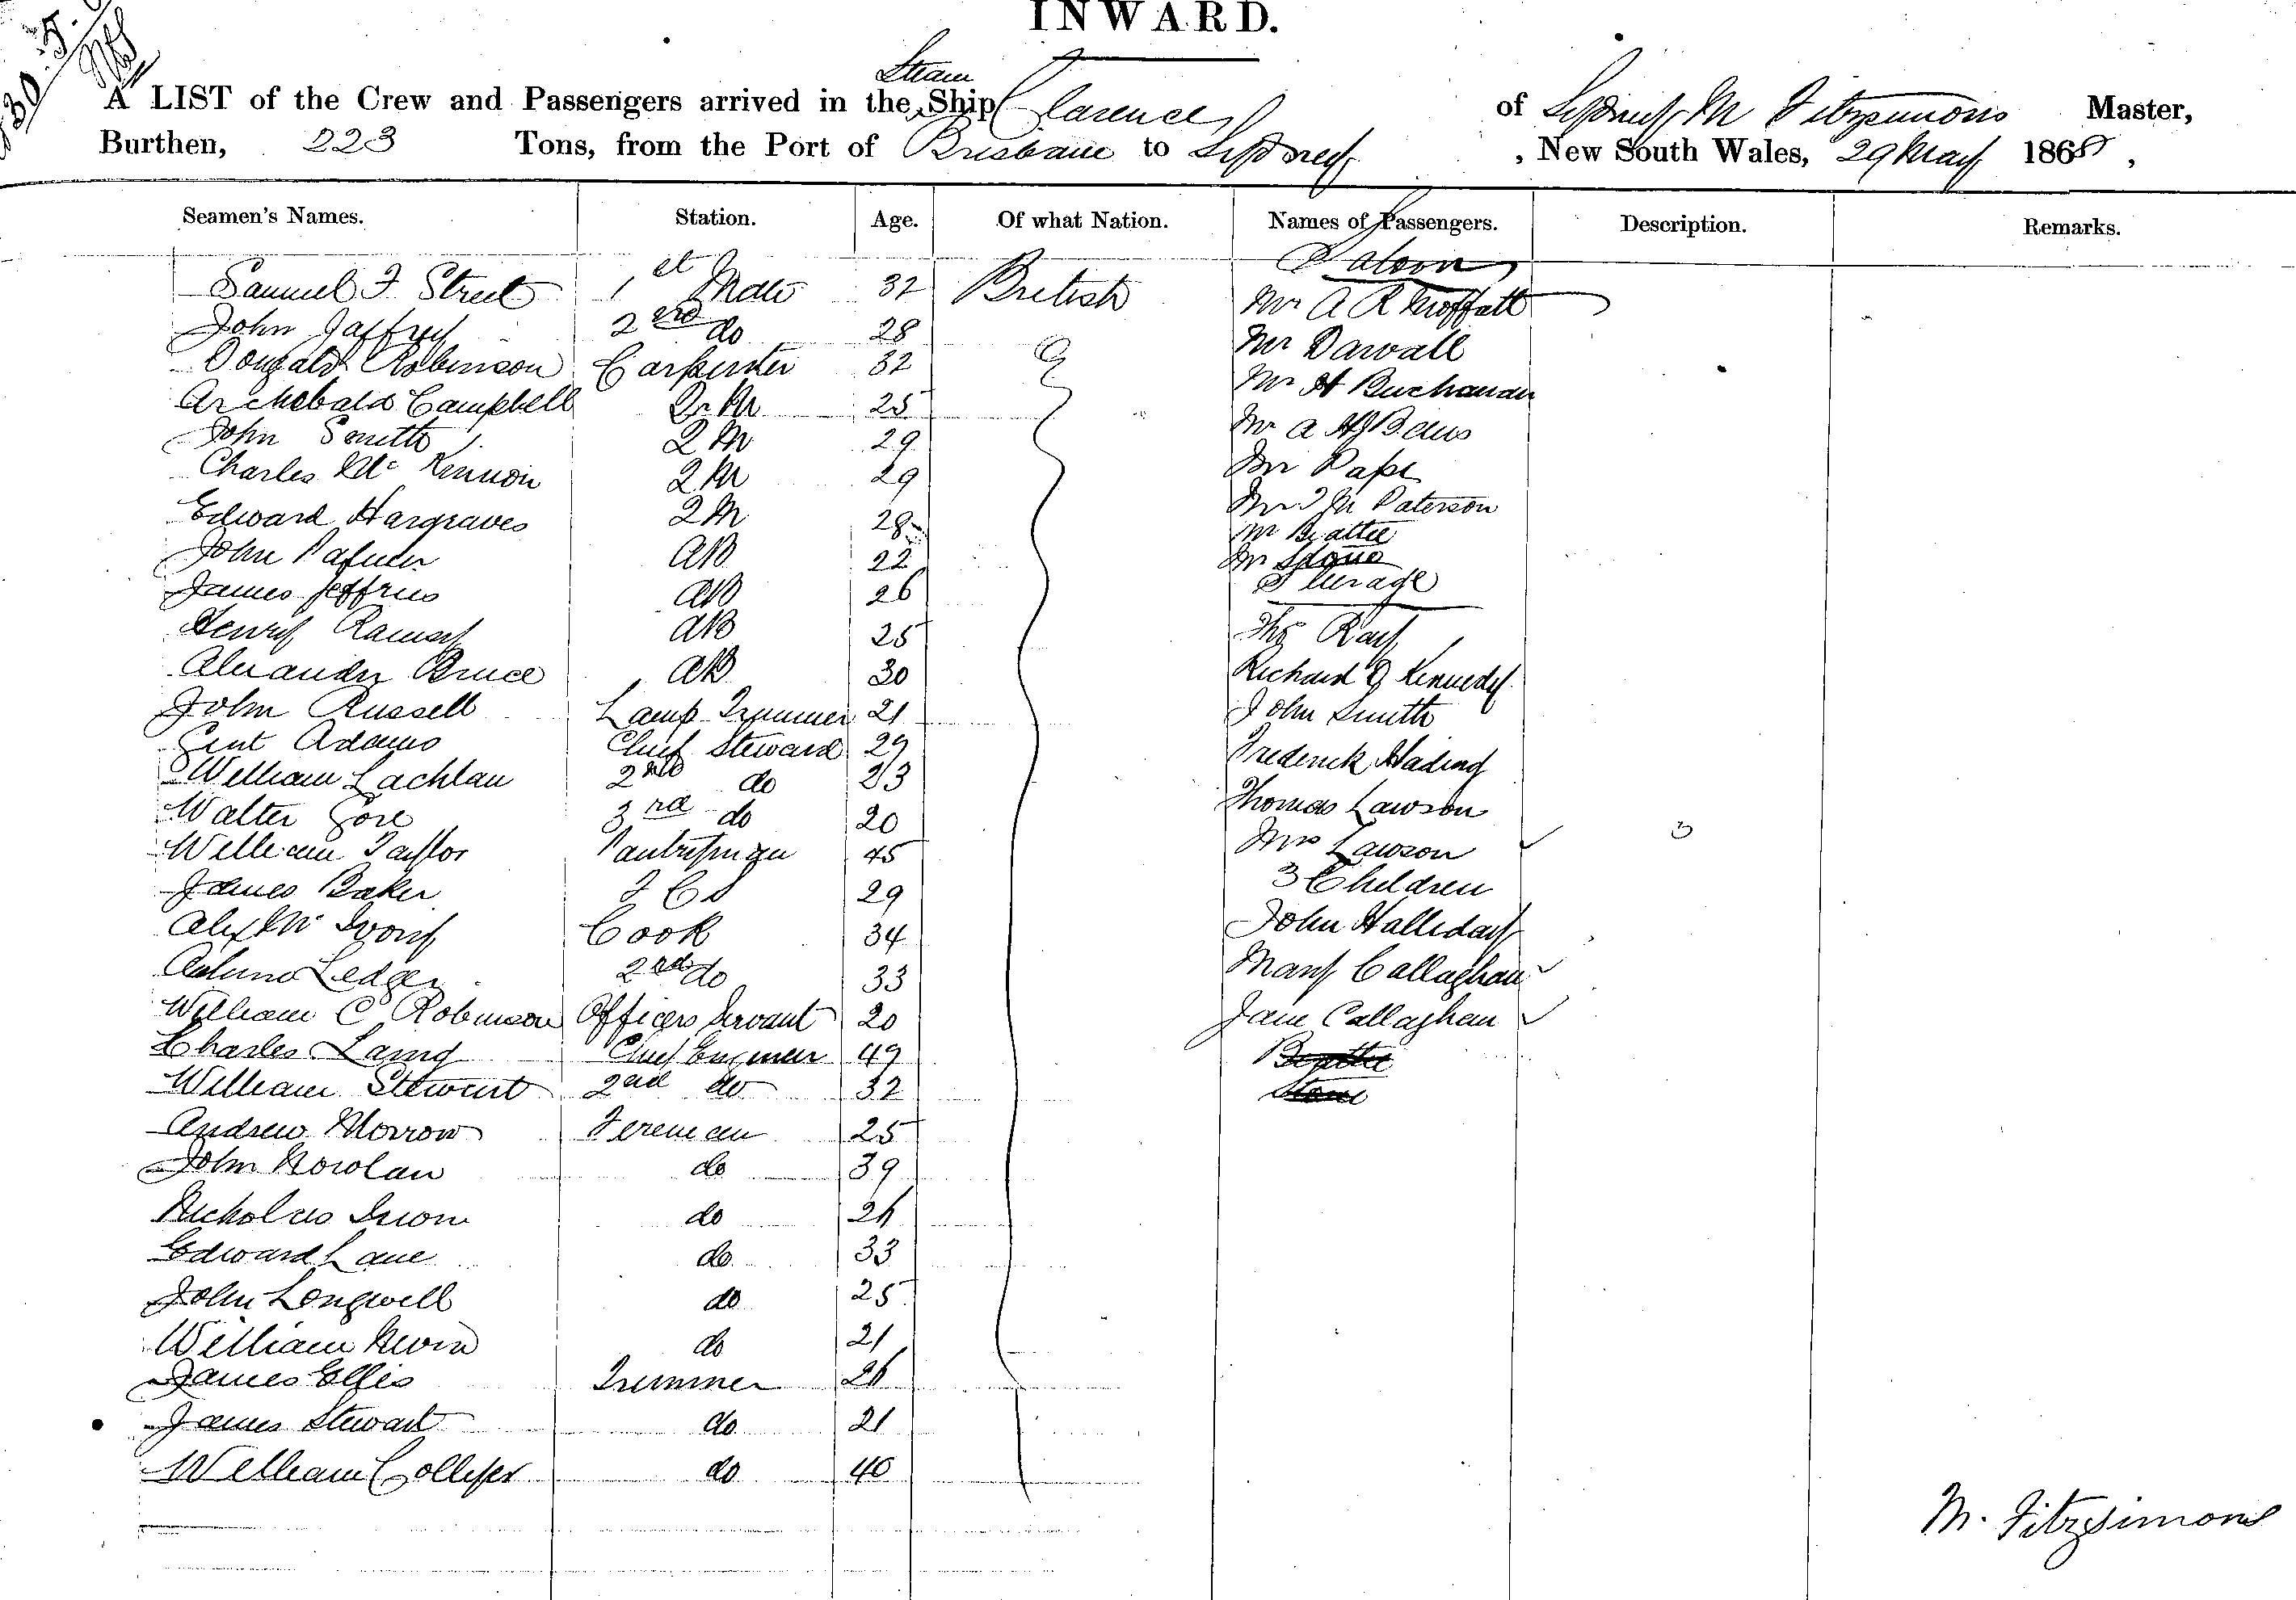 INWARD.
Steam
A LIST of the Crew and Passengers arrived in the Ship Clarence of Sydney M Fitzsimons Master,
Burthen, 223 Tons, from the Port of Brisbane to Sydney, New South Wales, 29 May 1868,
Seamen's Names. Station. Age. Of what Nation. Names of Passengers. Description. Remarks.
Saloon
Samuel F. Street 1st Mate 32 British Mr A R Moffatt
John Jaffrey 2nd do 28 Mr Darvall
Donald Robinson Carpenter 32 Mr H Buchanan
Archebald Campbell Q. M. 25 Mr A
John Smith Q M 29 Mr Pape
Charles Mc Kinnon Q M 29 Paterson
Edward Hargraves Q M 28 Mr Beattie
John Palmer AB 22 Mr Stone
Steerage
James Jeffries AB 26
Henry Ramsey AB 25 Ray
Alexander Bruce AB 30 Richard Kennedy
John Russell Lamp Trimmer 21 John Smith
Adams Chief Steward 29 Frederick
William Lachlan 2nd do 23
Walter Gore 3rd do 20 Thomas Lawson
William Taylor Pantryman 45 Mrs Lawson
James Baker 29 3 Children
Alex Mc Cook 34 John Halliday
Ledger 2nd do 33 Mary Callaghan
William C Robinson Officers Servant 20 Jane Callaghan
Charles Laing Chief Engineer 49
William Stewart 2nd do 32
Andrew Morrow Fireman 25
John Nowlan do 39
Nicholas do 26
Edward Lane do 33
John Longwell do 25
William do 21
James Ellis Trimmer 26
James Stewart do 21
William Collyer do 40
M. Fitzsimons